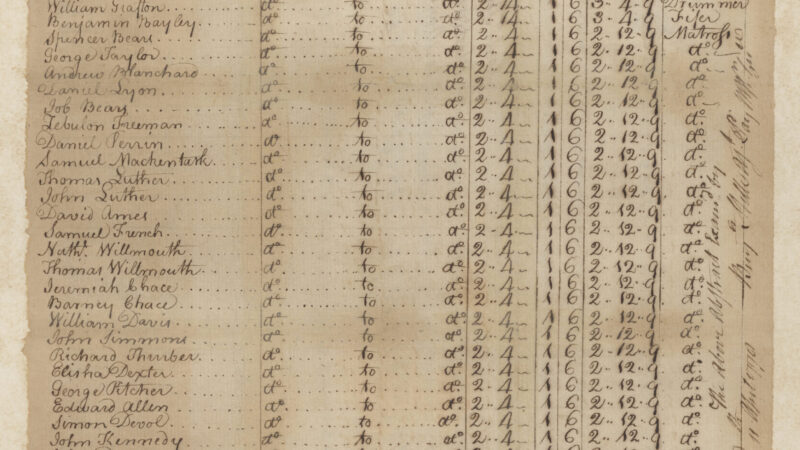 William Grafton do to do 2 4 1 6 3 4 9 Drummer
Benjamin Bayley do to do 2 4 1 6 3 4 9 Fifer
Spencer Bears do to do 2 4 1 6 2 12 9 Matross
George Taylor do to do 2 4 1 6 2 12 9 do
Andrew Blanchard do to do 2 4 1 6 2 12 9 do
Daniel Lyon do to do 2 4 1 6 2 12 9 do
Job Bears do to do 2 4 1 6 2 12 9 do
Zebulon Freeman do to do 2 4 1 6 2 12 9 do
Daniel Perrin do to do 2 4 1 6 2 12 9 do
Samuel Mackentusk do to do 2 4 1 6 2 12 9 do
Thomas Luther do to do 2 4 1 6 2 12 9 do
John Luther do to do 2 4 1 6 2 12 9 do
David Ames do to do 2 4 1 6 2 12 9 do
Samuel French do to do 2 4 1 6 2 12 9 do
Nathl Willmouth do to do 2 4 1 6 2 12 9 do
Thomas Willmouth do to do 2 4 1 6 2 12 9 do
Jeremiah Chace do to do 2 4 1 6 2 12 9 do
Barney Chace do to do 2 4 1 6 2 12 9 do
William Davis do to do 2 4 1 6 2 12 9 do
John Simmons do to do 2 4 1 6 2 12 9 do
Richard Thurber do to do 2 4 1 6 2 12 9 do
Elisha Dexter do to do 2 4 1 6 2 12 9 do
George Pitcher do to do 2 4 1 6 2 12 9 do
Edward Allen do to do 2 4 1 6 2 12 9 do
Simon Devol do to do 2 4 1 6 2 12 9 do
John Kennedy do to do 2 4 1 6 2 12 9 do
The above Abstract Examd by